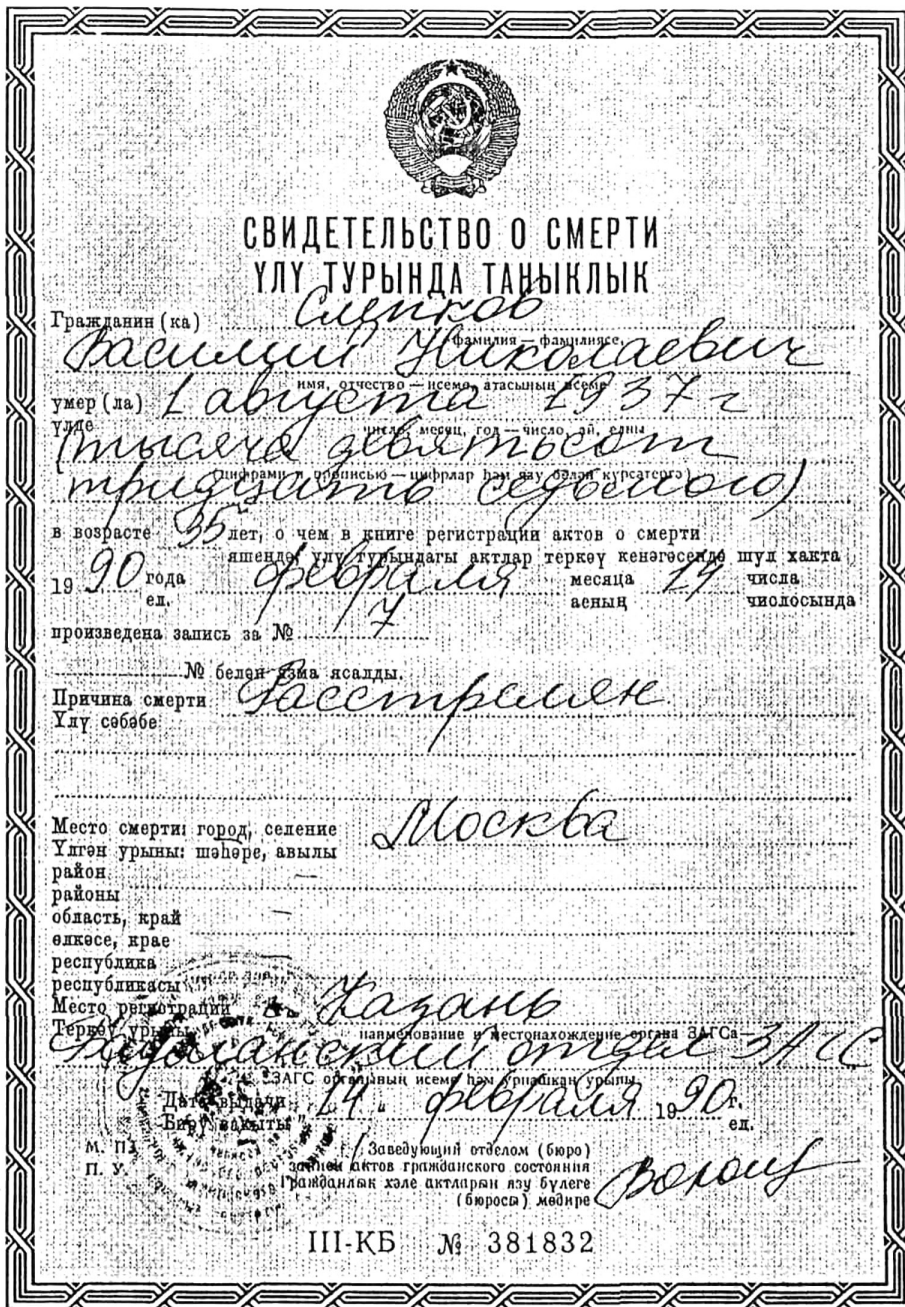 СВИДЕТЕЛЬСТВО О СМЕРТИ
ҮЛҮ ТУРЫНДА ТАНЫКЛЫК
Гражданин (ка) Слепков
фамилия — фамилиясе,
Василий Николаевич
имя, отчество — исеме, атасының исеме
умер (ла) 1 августа 1937 г
үлде
число, месяц, год — число, ай, елны
(тысяча девятьсот
(цифрами и прописью — цифрлар һәм язу белән күрсәтергә)
тридцать седьмого)
в возрасте 35 лет, о чем в книге регистрации актов о смерти
яшендә, үлү турындагы актлар теркәү кенәгәсендә шул хакта
19 90 года февраля месяца числа
ел. аеның числосында
произведена запись за № 7
№ белән язма ясалды.
Причина смерти Расстрелян
Үлү сәбәбе
Место смерти: город, селение Москва
Үлгән урыны: шәһәре, авылы
район —
районы
область, край —
өлкәсе, крае
республика
республикасы
Место регистрации г. Казань
Теркәү урыны
наименование и местонахождение органа ЗАГСа —
отдел ЗАГС
ЗАГС органының исеме һәм урнашкан урыны
Дата выдачи „ февраля 19 90 г.
Бирү вакыты ел.
М. П. Заведующий отделом (бюро)
П. У. записи актов гражданского состояния
Гражданлык хәле актларын язу бүлеге
(бюросы) мөдире
III-КБ № 381832